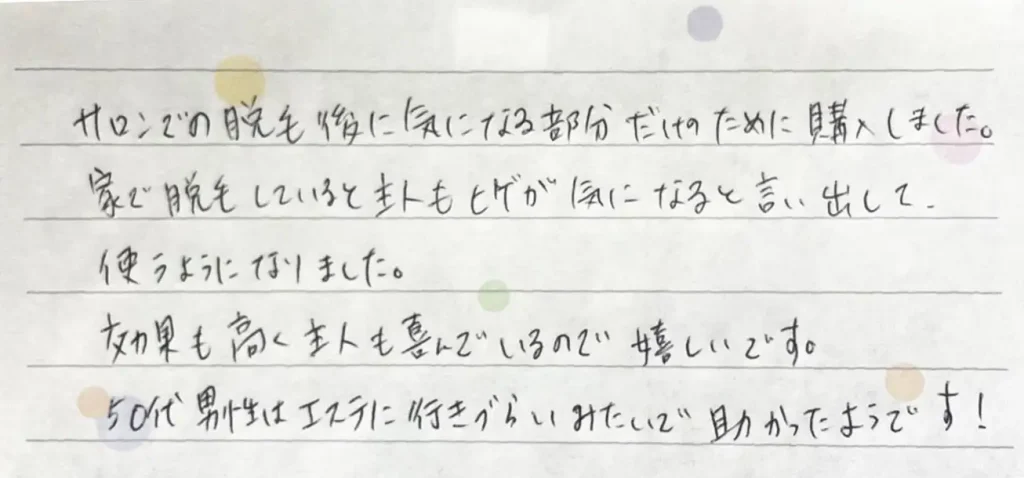 サロンでの脱毛後に気になる部分だけのために購入しました。
家で脱毛していると主人もヒゲが気になると言い出して、
使うようになりました。
効果も高く主人も喜んでいるので嬉しいです。
50代男性はエステに行きづらいみたいで助かったようです！